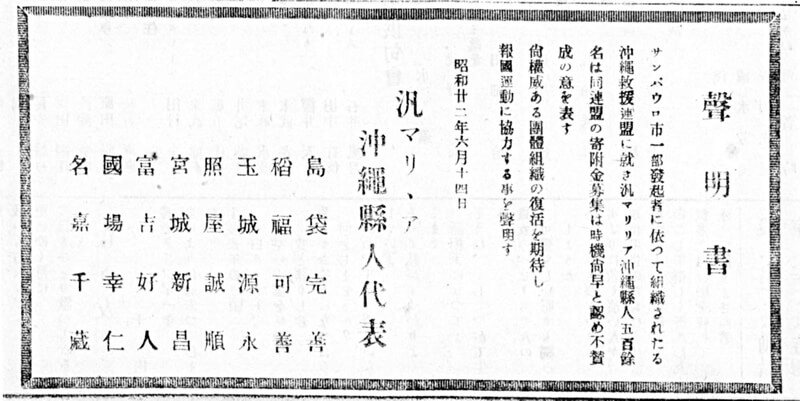 聲明書
サンパウロ市一部發起者に依つて組織されたる
沖繩救援連盟に就き汎マリリア沖繩縣人五百餘
名は同連盟の寄附金募集は時機尙早と認め不贊
成の意を表す
尙權威ある團體組織の復活を期待し
報國運動に協力する事を聲明す
昭和廿二年六月十四日
汎マリヽア
沖繩縣人代表
島袋完善
稻福可善
玉城源永
照屋誠順
宮城新昌
富吉好人
國場幸仁
名嘉千藏